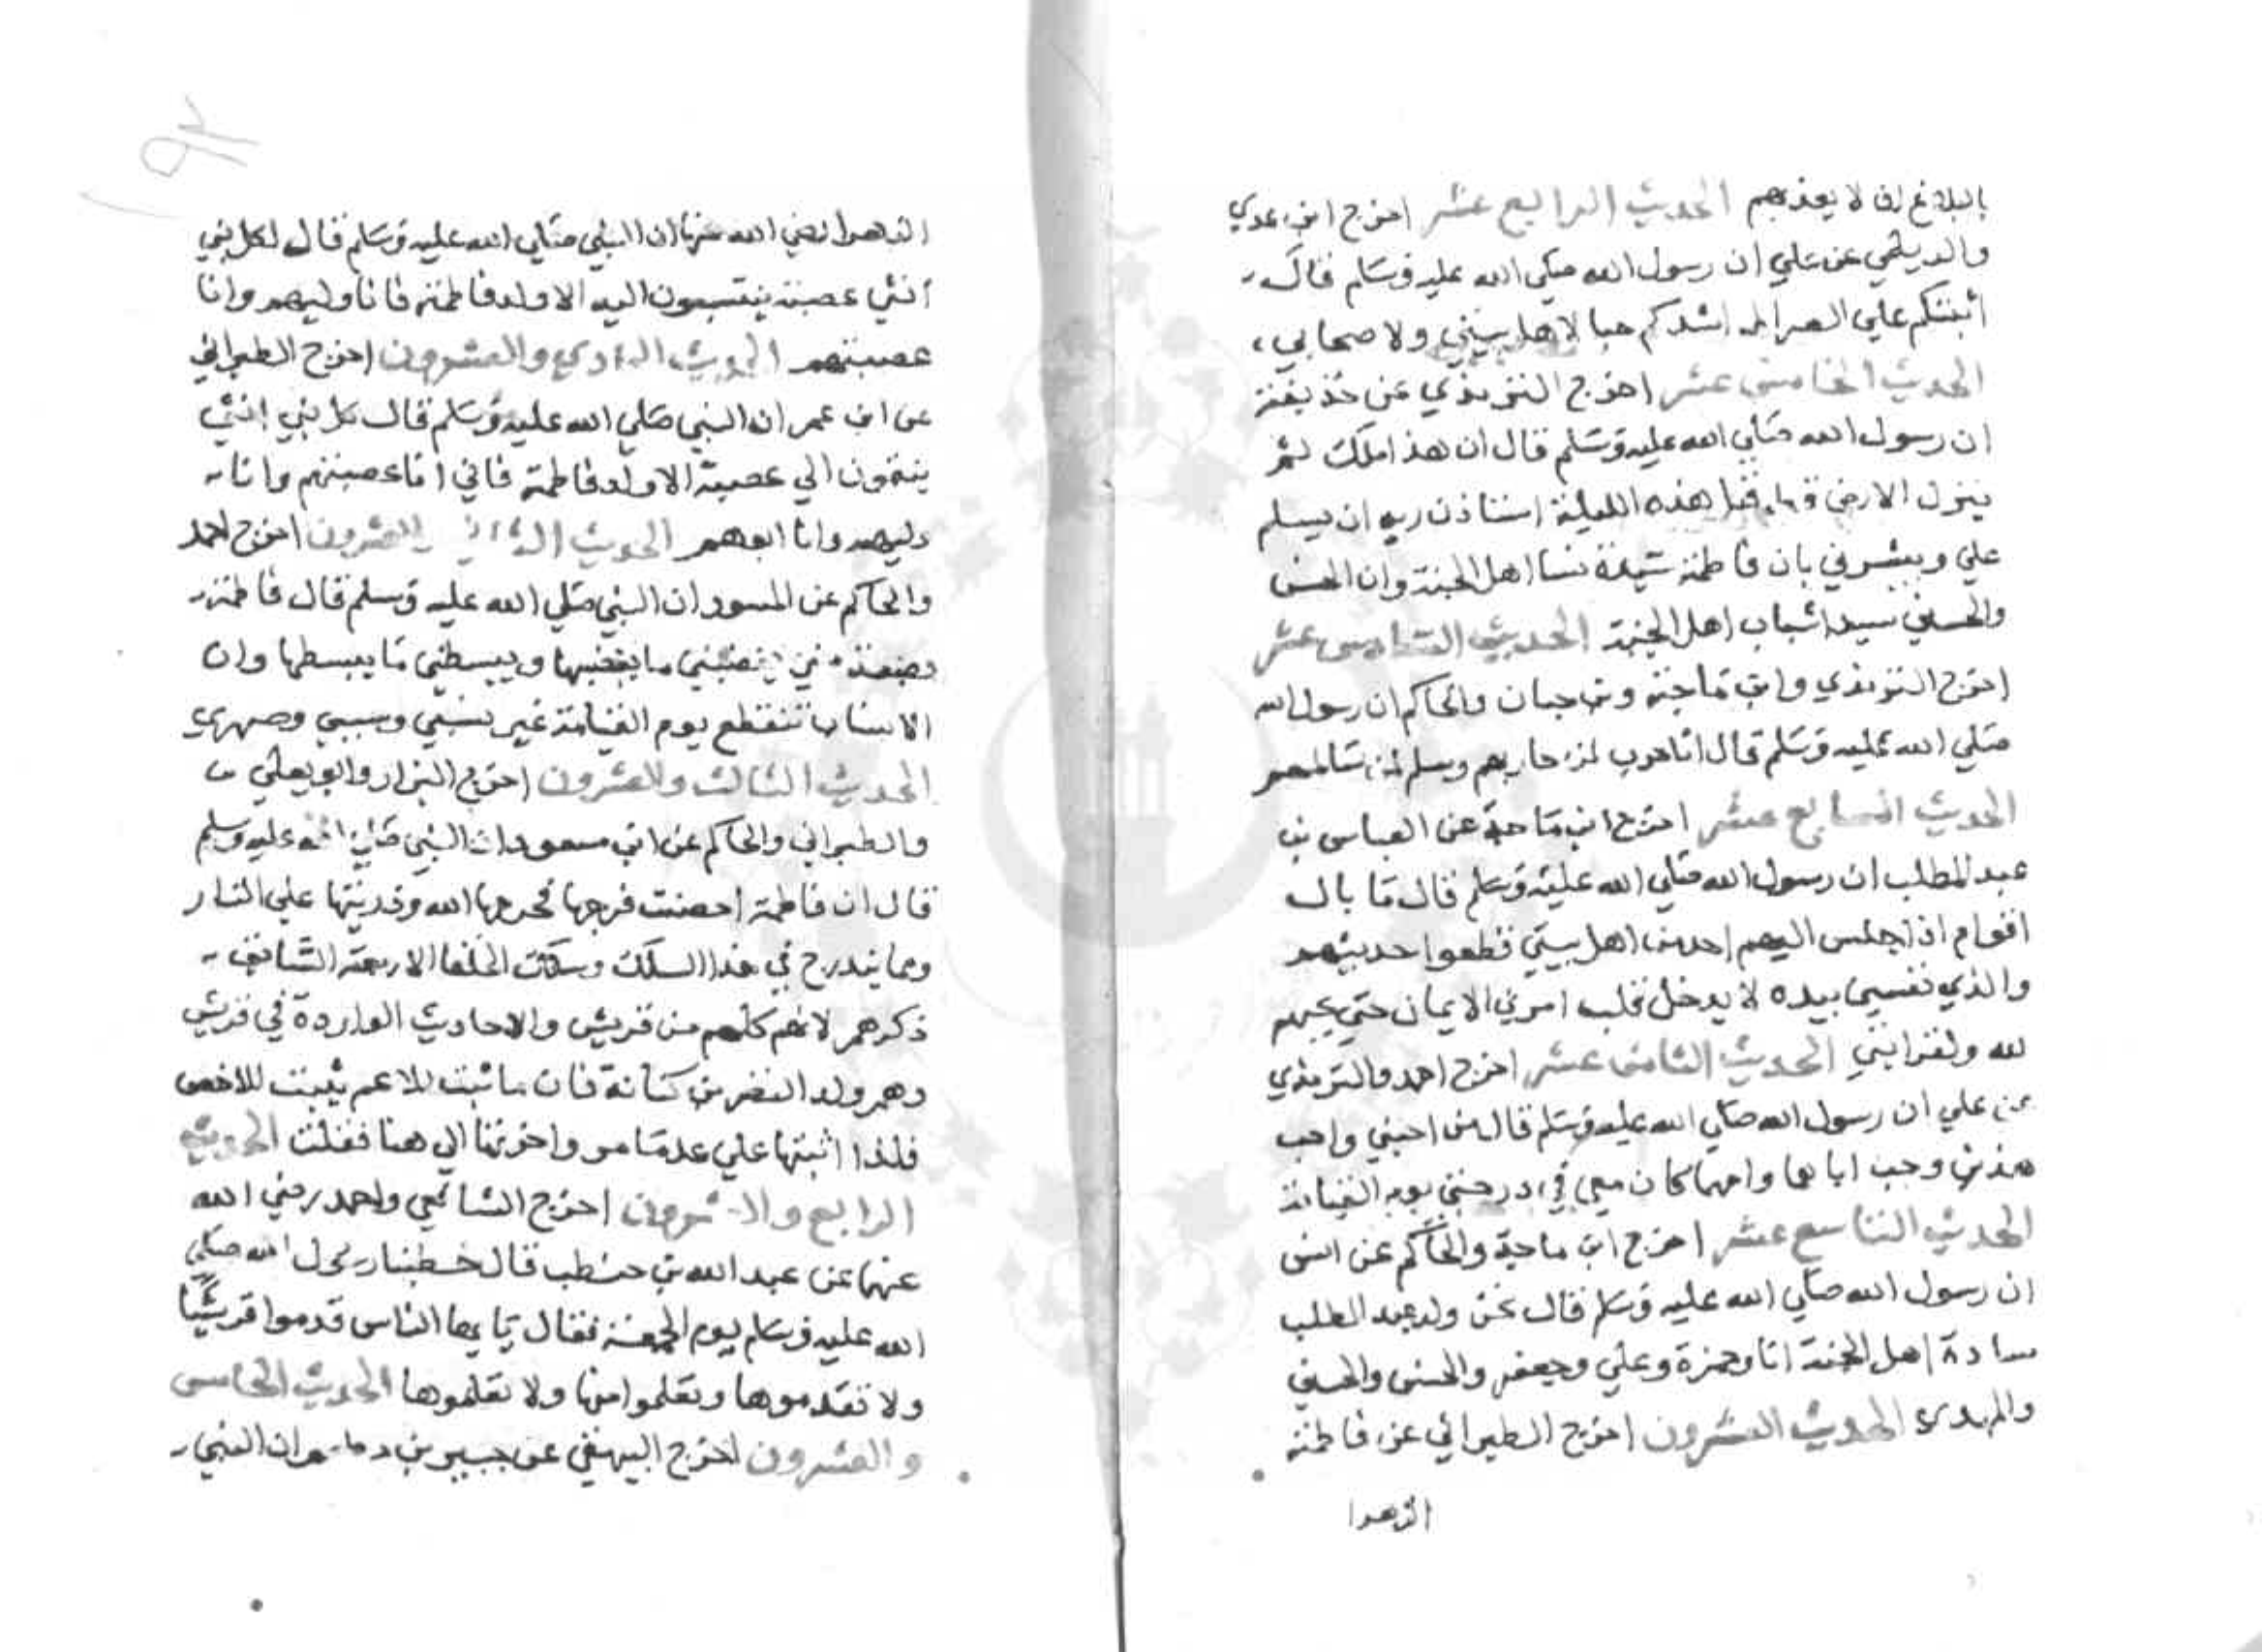 بالبلاغ ان لا يعذبهم الحديث الرابع عشر اخرج ابن عدي
والديلمي عن علي ان رسول الله صلي الله عليه وسلم قال
أثبتكم علي الصراط اشدكم حبا لاهل بيتي ولاصحابي
الحديث الخامس عشر اخرج الترمذي عن حذيفة
ان رسول الله صلي الله عليه وسلم قال ان هذا ملك لم
ينزل الارض قط قبل هذه الليلة استاذن ربه ان يسلم
علي ويبشرني بان فاطمة سيدة نسا اهل الجنة وان الحسن
والحسين سيدا شباب اهل الجنة الحديث السادس عشر
اخرج الترمذي وابن ماجة وبن حبان والحاكم ان رسول الله
صلي الله عليه وسلم قال انا حرب لمن حاربهم وسلم لمن سالمهم
الحديث السابع عشر اخرج ابن ماجة عن العباس بن
عبد المطلب ان رسول الله صلي الله عليه وسلم قال ما بال
اقوام اذا جلس اليهم احد من اهل بيتي قطعوا حديثهم
والذي نفسي بيده لا يدخل قلب امرئ الايمان حتي يحبهم
لله ولقرابتي الحديث الثامن عشر اخرج احمد والترمذي
عن علي ان رسول الله صلي الله عليه وسلم قال من احبني واحب
هذين وحب اباهما وامهما كان معي في درجتي يوم القيامة
الحديث التاسع عشر اخرج ابن ماجة والحاكم عن انس
ان رسول الله صلي الله عليه وسلم قال نحن ولد عبد المطلب
سادة اهل الجنة انا وحمزة وعلي وجعفر والحسن والحسين
والمهدي الحديث العشرون اخرج الطبراني عن فاطمة
الزهرا
١٩٢
الزهرا رضي الله عنها ان النبي صلي الله عليه وسلم قال لكل بني
أنثي عصبة ينتسبون اليه الا ولد فاطمة فانا وليهم وانا
عصبتهم الحديث الحادي والعشرون اخرج الطبراني
عن ابن عمر ان النبي صلي الله عليه وسلم قال كل بني انثي
ينتمون الي عصبة الا ولد فاطمة فاني انا عصبتهم وانا
وليهم وانا ابوهم الحديث الثاني والعشرون اخرج احمد
والحاكم عن المسور ان النبي صلي الله عليه وسلم قال فاطمة
بضعة مني يغضبني ما يغضبها ويبسطني ما يبسطها وان
الانساب تنقطع يوم القيامة غير نسبي وسببي وصهري
الحديث الثالث والعشرون اخرج البزار وابو يعلي
والطبراني والحاكم عن ابن مسعود ان النبي صلي الله عليه وسلم
قال ان فاطمة احصنت فرجها فحرمها الله وذريتها علي النار
ومما يندرج في هذا السلك وسلك الخلفا الاربعة السابق
ذكرهم لانهم كلهم من قريش والاحاديث الواردة في قريش
وهم ولد النضر بن كنانة فان ما ثبت للاعم يثبت للاخص
فلذا اثبتها علي عد ما مر واخرتها الي هنا فقلت الحديث
الرابع والعشرون اخرج الشافعي واحمد رضي الله
عنهما عن عبد الله بن حنطب قال خطبنا رسول الله صلي
الله عليه وسلم يوم الجمعة فقال يايها الناس قدموا قريشا
ولا تقدموها وتعلموا منها ولا تعلموها الحديث الخامس
والعشرون اخرج البيهقي عن جبير بن مطعم ان النبي